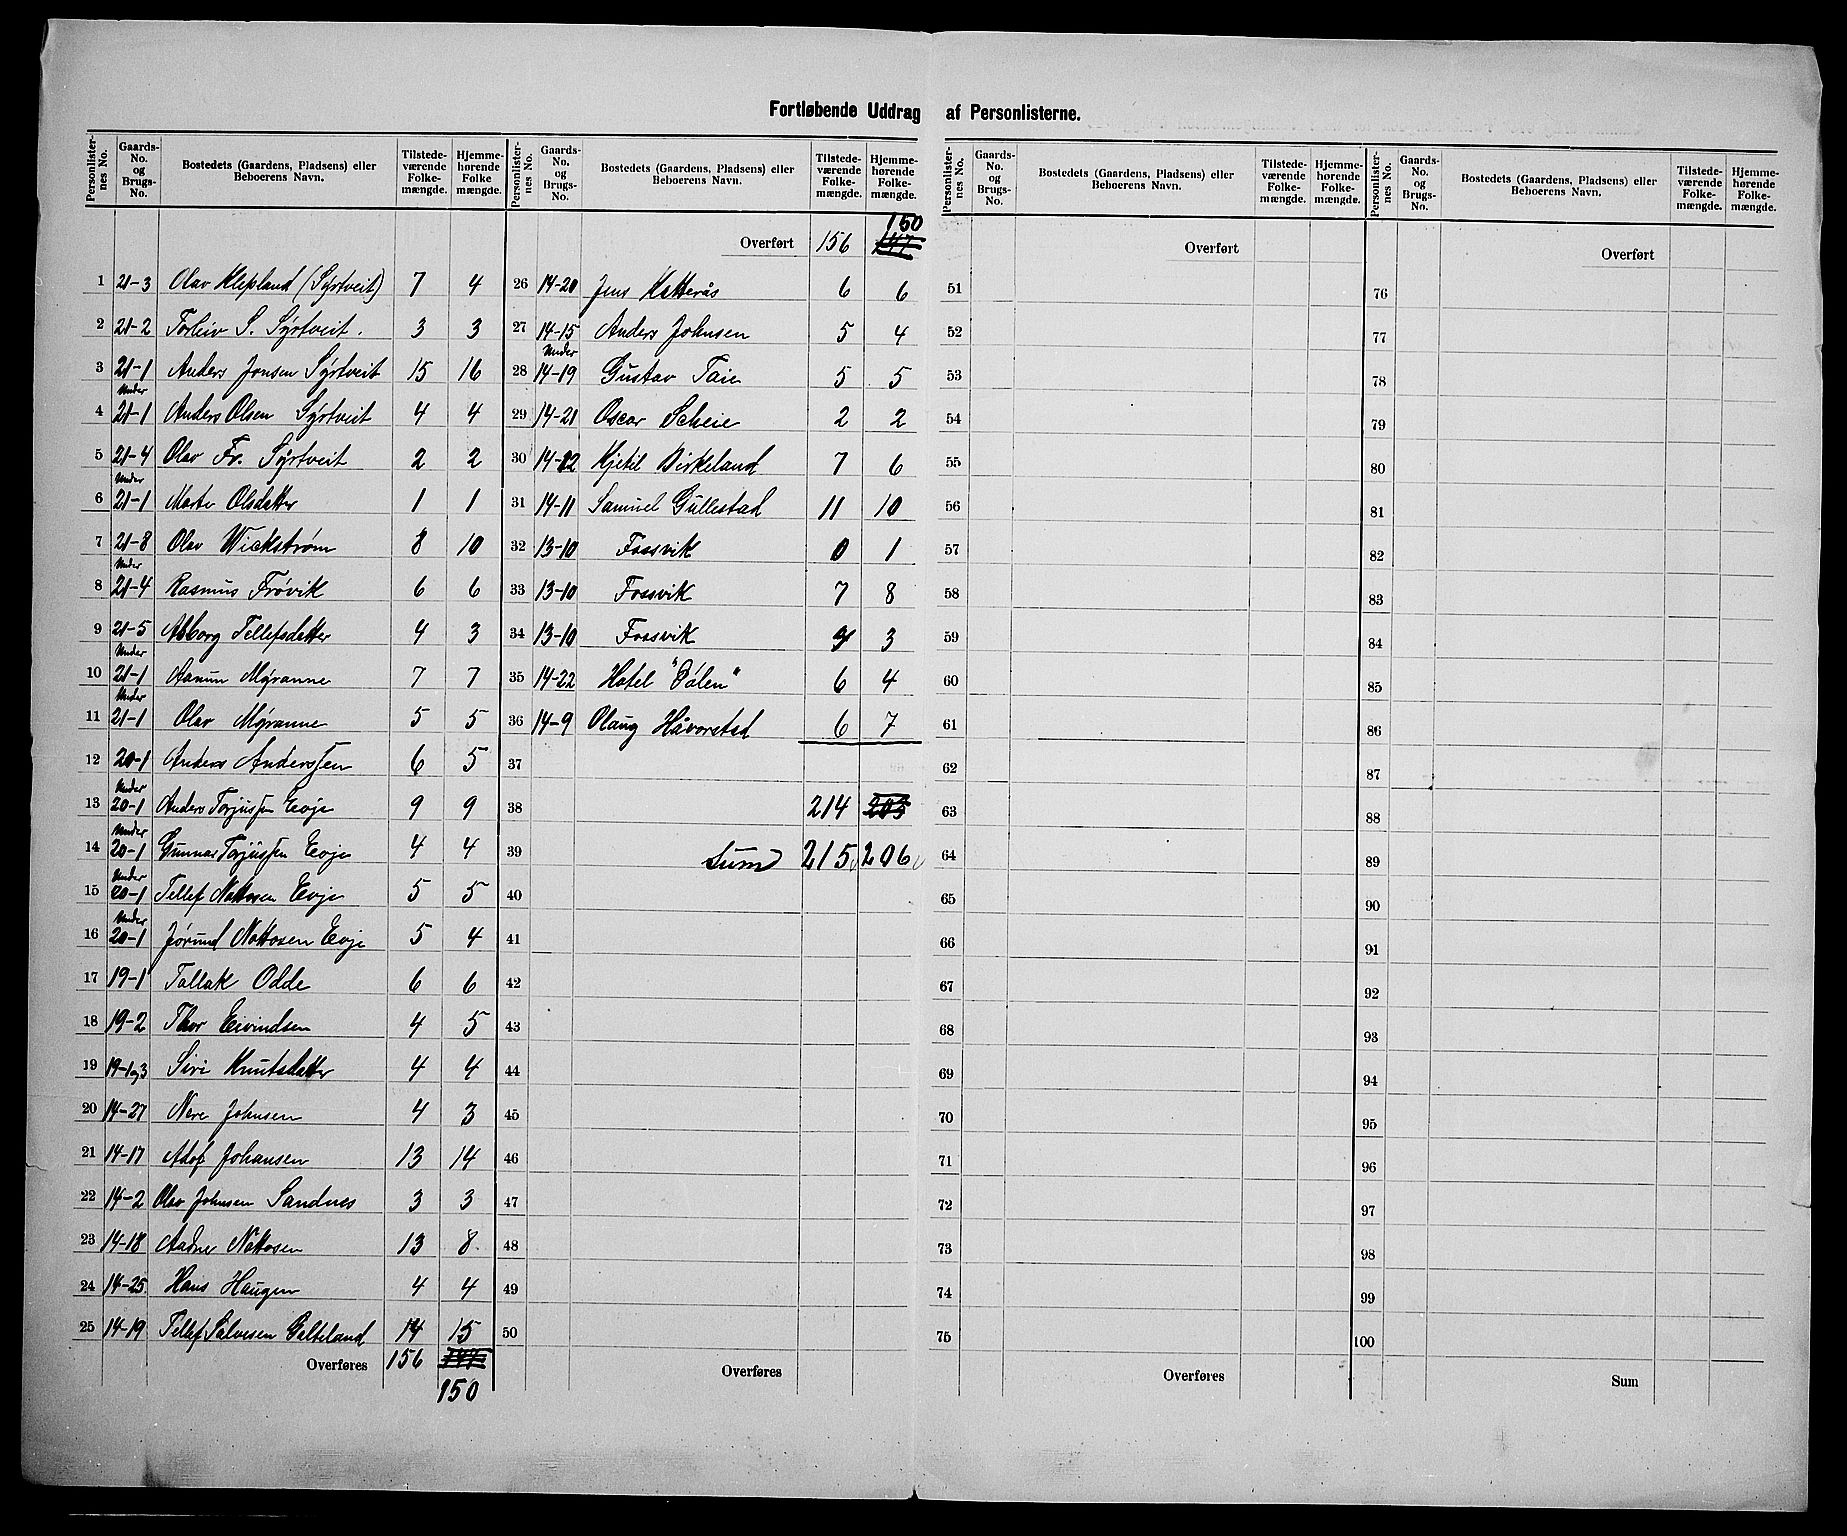 Fortløbende Uddrag af Personlisterne.
Personlisternes No. | Gaards-No. og Brugs-No. | Bostedets (Gaardens, Pladsens) eller Beboerens Navn. | Tilstedeværende Folkemængde. | Hjemmehørende Folkemængde.
1 21-3 Olav Klepland (Syrtveit) 7 4
2 21-2 Torleiv S. Syrtveit. 3 3
3 21-1 Anders Jonsen Syrtveit 15 16
4 Under 21-1 Anders Olsen Syrtveit 4 4
5 21-4 Olav Fr. Syrtveit 2 2
6 Under 21-1 Marte Olsdatter 1 1
7 21-8 Olav Wickstrøm 8 10
8 Under 21-4 Rasmus Frøvik 6 6
9 21-5 Asborg Tellefsdatter 4 3
10 Under 21-1 Aanun Myranne 7 7
11 Under 21-1 Olav Myranne 5 5
12 20-1 Anders Anderssen 6 5
13 Under 20-1 Anders Torjussen Evje 9 9
14 Under 20-1 Gunnar Torjussen Evje 4 4
15 Under 20-1 Tellef Nottosen Evje 5 5
16 Under 20-1 Jørund Nottosen Evje 5 4
17 19-1 Tallak Odde 6 6
18 19-2 Thor Eivindsen 4 5
19 19-1og3 Siri Knutsdatter 4 4
20 14-27 Nere Johnsen 4 3
21 14-17 Adof Johansen 13 14
22 14-2 Olav Johnsen Sandnes 3 3
23 14-18 Aadne Nottosen 13 8
24 14-25 Hans Haugen 4 4
25 14-19 Tellef Salvesen Galteland 14 15
Overføres 156 147
150
Personlisternes No. | Gaards-No. og Brugs-No. | Bostedets (Gaardens, Pladsens) eller Beboerens Navn. | Tilstedeværende Folkemængde. | Hjemmehørende Folkemængde.
150
Overført 156 147
26 14-20 Jens Katterås 6 6
27 14-15 Anders Johnsen 5 4
28 Under 14-19 Gustav Taie 5 5
29 14-21 Oscar Scheie 2 2
30 14-12 Kjetil Birkeland 7 6
31 14-11 Samuel Gullestad 11 10
32 13-10 Fossvik 0 1
33 13-10 Fossvik 7 8
34 13-10 Fossvik 3
35 14-22 Hotel "Dølen" 6 4
36 14-9 Olaug Håvorstad 6 7
37
38 214 203
39 Sum 215 206
40
41
42
43
44
45
46
47
48
49
50
Overføres
Personlisternes No. | Gaards-No. og Brugs-No. | Bostedets (Gaardens, Pladsens) eller Beboerens Navn. | Tilstedeværende Folkemængde. | Hjemmehørende Folkemængde.
Overført
51
52
53
54
55
56
57
58
59
60
61
62
63
64
65
66
67
68
69
70
71
72
73
74
75
Overføres
Personlisternes No. | Gaards-No. og Brugs-No. | Bostedets (Gaardens, Pladsens) eller Beboerens Navn. | Tilstedeværende Folkemængde. | Hjemmehørende Folkemængde.
Overført
76
77
78
79
80
81
82
83
84
85
86
87
88
89
90
91
92
93
94
95
96
97
98
99
100
Sum